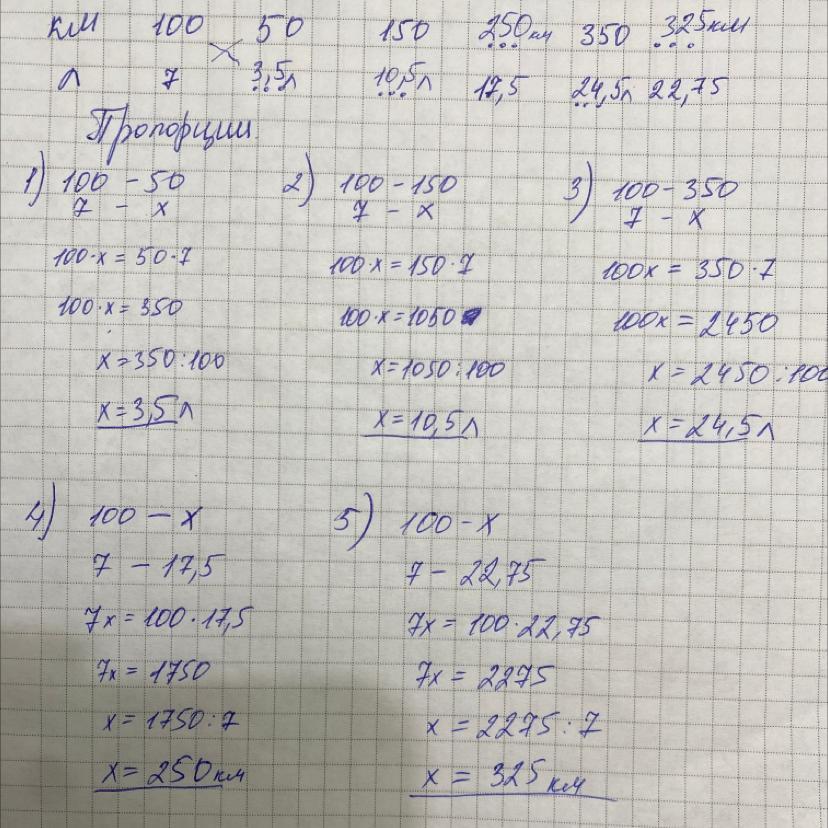 км 100 50 150 250км 350 325км
л 7 3,5л 10,5л 17,5 24,5л 22,75
Пропорции.
1) 100 - 50
7 - х
100·х = 50·7
100·х = 350
х = 350:100
х = 3,5 л
2) 100 - 150
7 - х
100·х = 150·7
100·х = 1050
х = 1050:100
х = 10,5 л
3) 100 - 350
7 - х
100х = 350·7
100х = 2450
х = 2450:100
х = 24,5 л
4) 100 - х
7 - 17,5
7х = 100·17,5
7х = 1750
х = 1750:7
х = 250 км
5) 100 - х
7 - 22,75
7х = 100·22,75
7х = 2275
х = 2275:7
х = 325 км